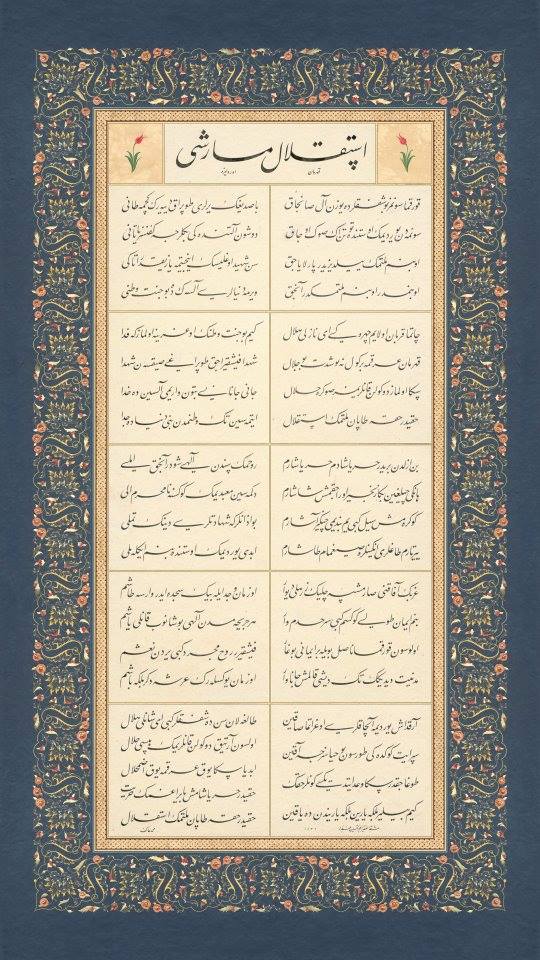 استقلال مارشی
قهرمان اوردومزه
قورقما سونمز بو شفقلرده یوزن آل صانجاق
سونمه‌دن یوردیمك اوستنده توتن اك صوك اوجاق
او بنم ملتمك ییلدیزیدر پارلایاجق
او بنمدر او بنم ملتمكدر آنجق
چاتما قربان اولایم چهره‌كی ای نازلی هلال
قهرمان عرقمه بر كول نه بو شدت بو جلال
سكا اولماز دوكولن قانلریمز صوكره حلال
حقیدر حقه طاپان ملتمك استقلال
بن ازلدن بریدر حر یاشادم حر یاشارم
هانكی چیلغین بكا زنجیر اوراجقمش شاشارم
كوكره‌مش سیل كبی‌یم بندیمی چیكنر آشارم
ییرتارم طاغلری انكینلره صیغمام طاشارم
غربك آفاقنی صارمشسه چلیك زرهلی دیوار
بنم ایمان طولو كوكسم كبی سرحدم وار
اولوسون قورقما ناصل بویله بر ایمانی بوغار
مدنیت دیدیكك تك دیشی قالمش جاناوار
آرقداش یوردیمه آلچاقلری اوغراتما صاقین
سپر ایت كوكده‌كی طورسون بو حیاسزجه آقین
طوغاجقدر سكا وعد ایتدیكی كونلر حقك
كیم بیلیر بلكه یارین بلكه یاریندن ده یاقین
باصدیغك یرلری طوپراق دییه‌رك كچمه طانی
دوشون آلتنده‌كی بیكلرجه كفنسز یاتانی
سن شهید اوغلیسك اینجیتمه یازیقدر آتاكی
ویرمه دنیالری آلسه‌ك ده بو جنت وطنی
كیم بو جنت وطنك اوغرینه اولماز كه فدا
شهدا فیشقیراجق طوپراغی صیقسه‌ك شهدا
جانی جانانی بتون واریمی آلسین ده خدا
ایتمه‌سین تك وطنمدن بنی دنیاده جدا
روحمك سندن الهی شودر آنجق املی
دكمه‌سین معبدیمك كوكسنه نامحرم الی
بو اذانلر كه شهادتلری دینك تملی
ابدی یوردیمك اوستنده بنم ایكله‌ملی
او زمان وجد ایله بیك سجده ایدر وارسه طاشم
هر جریحه‌مدن الهی بوشانوب قانلی یاشم
فیشقیرر روح مجرد كبی یردن نعشم
او زمان یوكسله‌رك عرشه دكر بلكه باشم
طالغه‌لان سن ده شفقلر كبی ای شانلی هلال
اولسون آرتیق دوكولن قانلریمك هپسی حلال
ابدیا سكا یوق عرقمه یوق اضمحلال
حقیدر حر یاشامش بایراغمك حریت
حقیدر حقه طاپان ملتمك استقلال